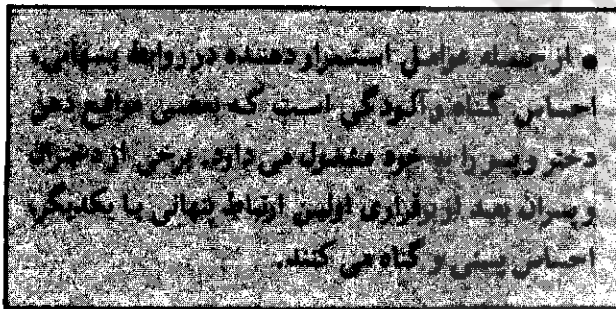 ● از جمله عوامل استمرار دهنده در روابط پنهانی،
احساس گناه و آلودگی است که بعضی مواقع ذهن
دختر و پسر را به خود مشغول می دارد. برخی از دختران
و پسران بعد از برقراری اولین ارتباط پنهانی با یکدیگر،
احساس پستی و گناه می کنند.